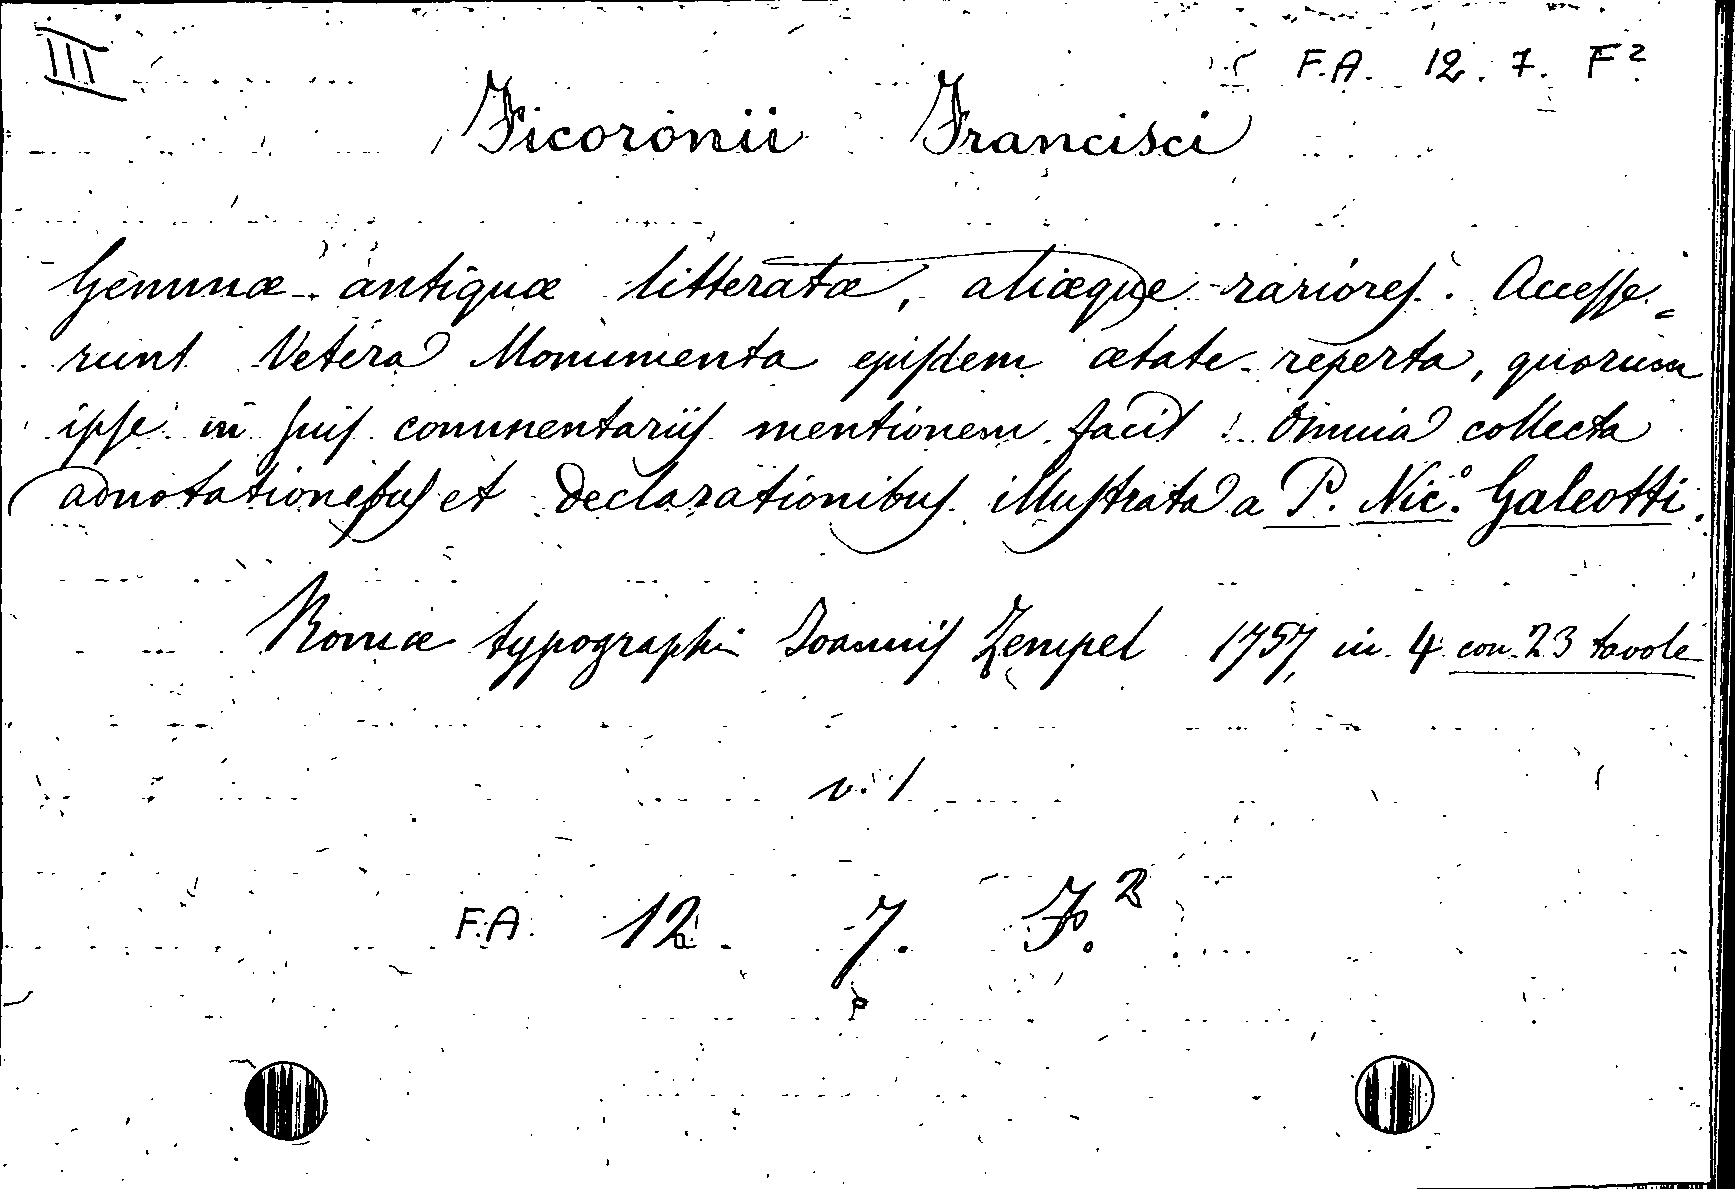 III
F.A. 12. 7. F²
Ficoronii Francisci
Gemmæ antiquæ litteratæ, aliæque rariores. Accesse=
runt Vetera Monumenta ejusdem ætate reperta, quorum
ipse in suis commentariis mentionem facit. Omnia collecta
adnotationibus et declarationibus illustrata a P. Nic.º Galeotti.
Romæ typographi Joannis Zempel 1757, in 4 con 23 tavole
v. 1
F.A. 12. 7. F.²